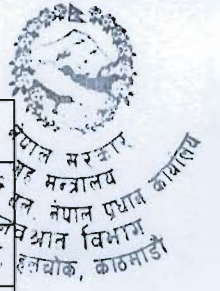 नेपाल सरकार
गृह मन्त्रालय
बल, नेपाल प्रधान कार्यालय
विभाग
हलचोक, काठमाडौं